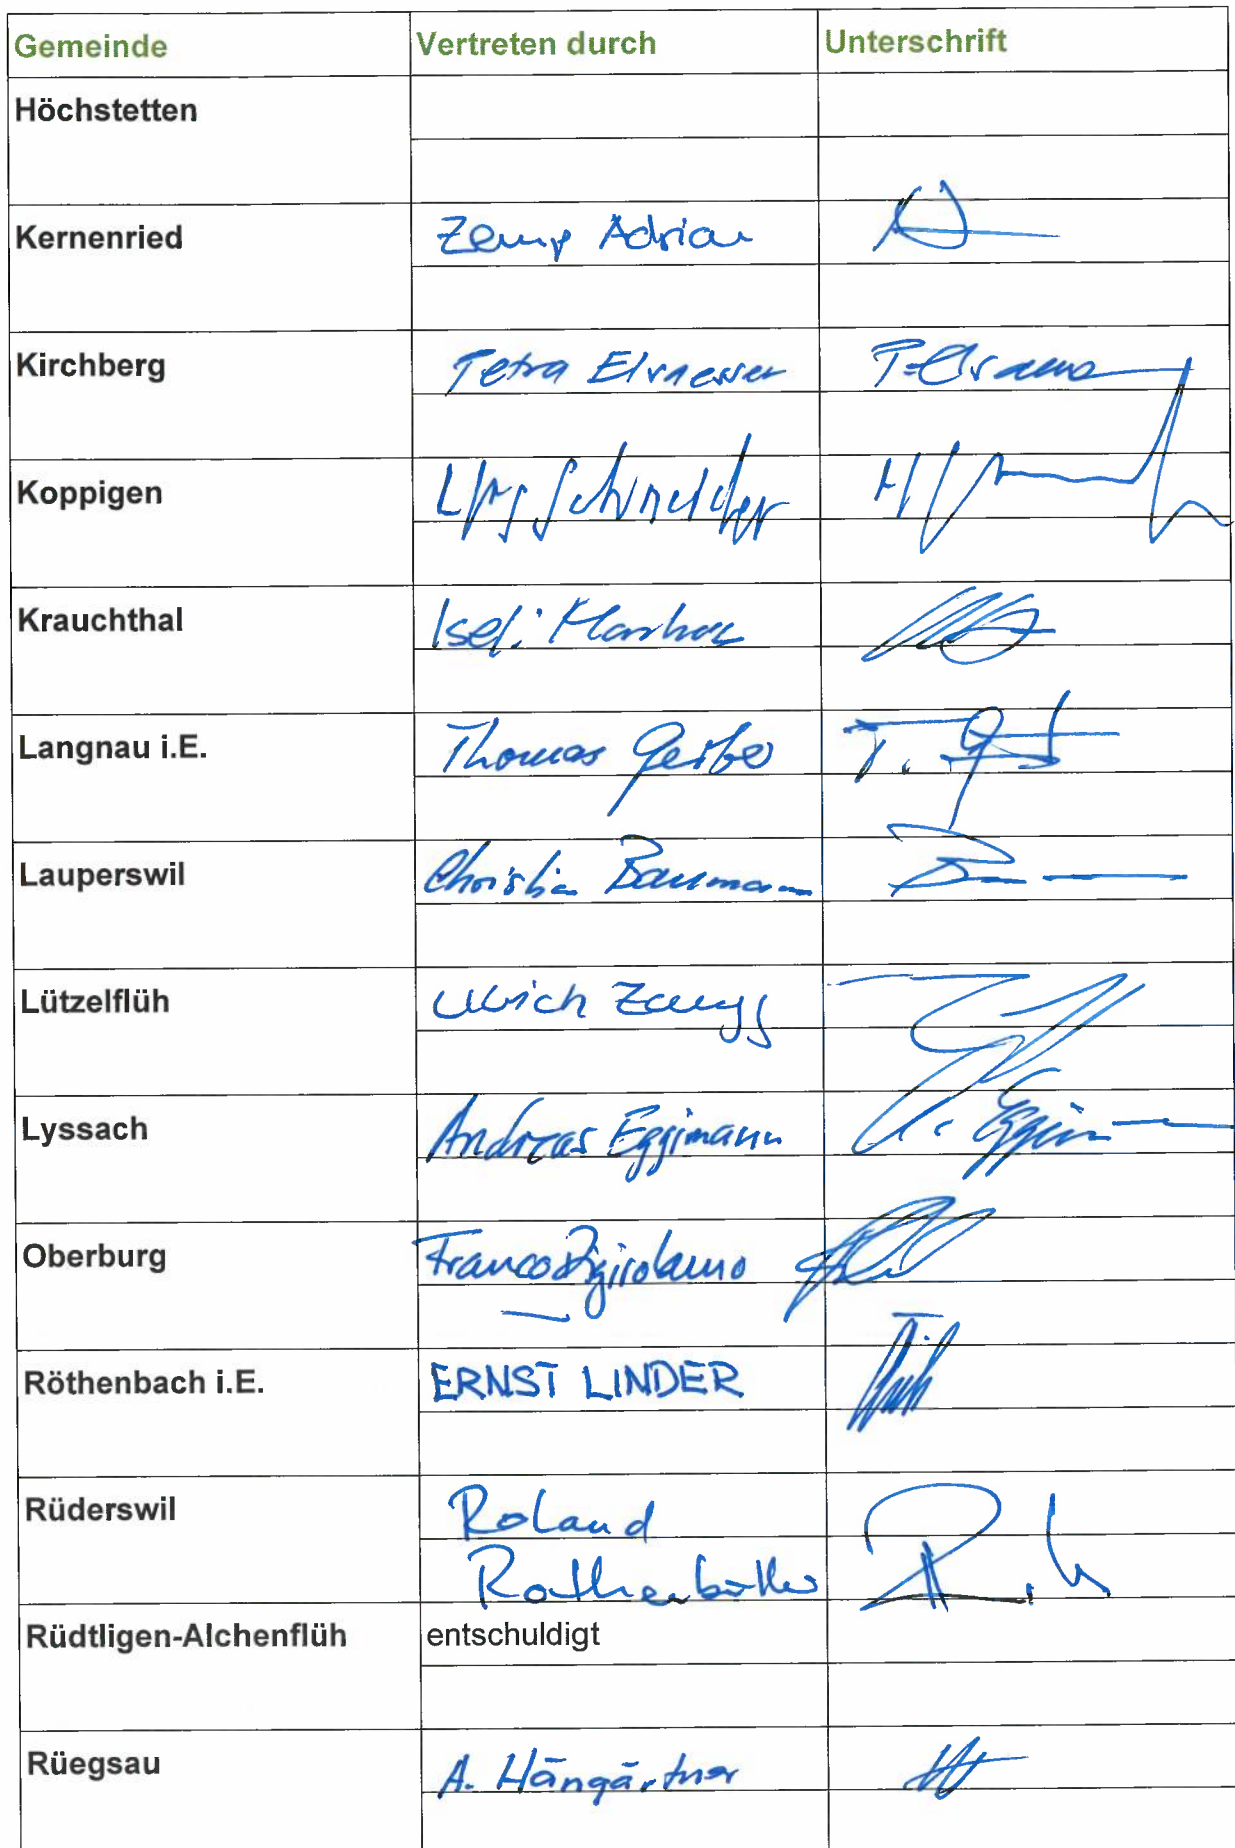 Gemeinde Vertreten durch Unterschrift
Höchstetten
Kernenried Zemp Adrian
Kirchberg Petra Elsaesser
Koppigen Urs Schneider
Krauchthal Iseli Markus
Langnau i.E. Thomas Gerber T.
Lauperswil Christian Baumann
Lützelflüh Ulrich Zaugg
Lyssach Andreas Eggimann
Oberburg Franco Digirolamo
Röthenbach i.E. ERNST LINDER
Rüderswil Roland
Rothenbühler
Rüdtligen-Alchenflüh entschuldigt
Rüegsau A. Hängärtner